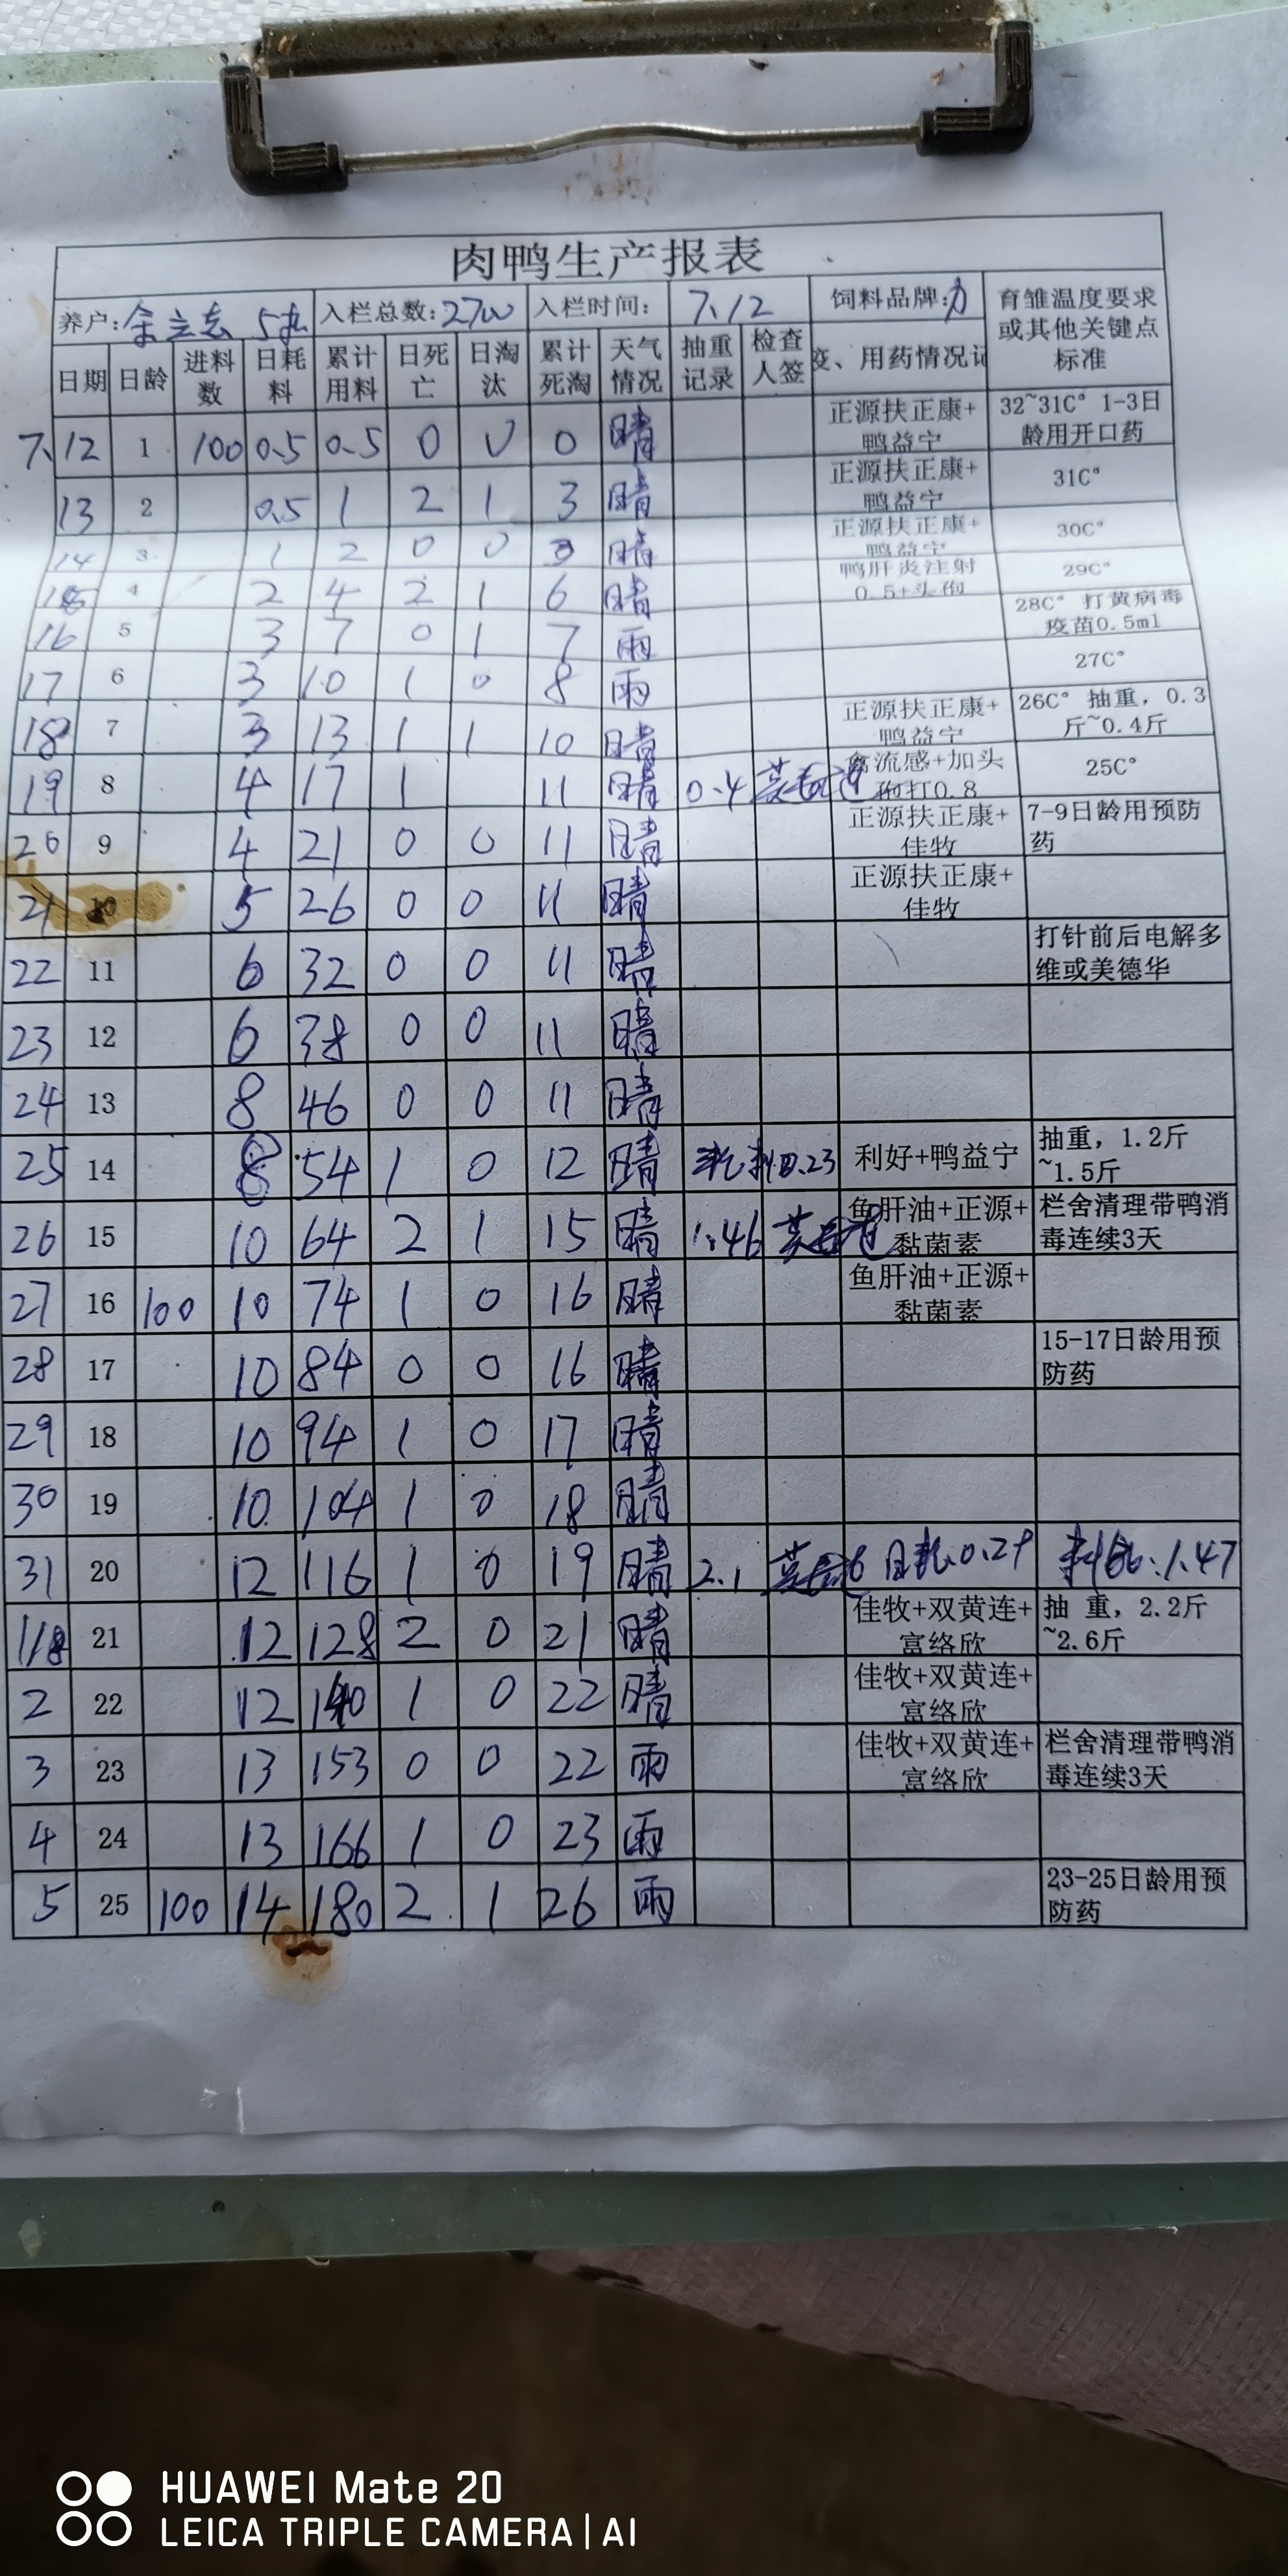 肉鸭生产报表
养户: 余立志 5批 入栏总数: 2700 入栏时间: 7.12 饲料品牌: 力 育雏温度要求或其他关键点标准
日期 日龄 进料数 日耗料 累计用料 日死亡 日淘汰 累计死淘 天气情况 抽重记录 检查人签 变、用药情况记
7.12 1 100 0.5 0.5 0 0 0 晴 正源扶正康+鸭益宁 32~31C° 1-3日龄用开口药
13 2 0.5 1 2 1 3 晴 正源扶正康+鸭益宁 31C°
14 3 1 2 0 0 3 晴 正源扶正康+鸭益宁 30C°
15 4 2 4 2 1 6 晴 鸭肝炎注射0.5+头孢 29C°
16 5 3 7 0 1 7 雨 28C° 打黄病毒疫苗0.5ml
17 6 3 10 1 0 8 雨 27C°
18 7 3 13 1 1 10 晴 正源扶正康+鸭益宁 26C° 抽重，0.3斤~0.4斤
19 8 4 17 1 11 晴 0.4 禽流感+加头孢打0.8 25C°
20 9 4 21 0 0 11 晴 正源扶正康+佳牧 7-9日龄用预防药
21 10 5 26 0 0 11 晴 正源扶正康+佳牧
22 11 6 32 0 0 11 晴 打针前后电解多维或美德华
23 12 6 38 0 0 11 晴
24 13 8 46 0 0 11 晴
25 14 8 54 1 0 12 晴 耗料0.23 利好+鸭益宁 抽重，1.2斤~1.5斤
26 15 10 64 2 1 15 晴 1.46 鱼肝油+正源+黏菌素 栏舍清理带鸭消毒连续3天
27 16 100 10 74 1 0 16 晴 鱼肝油+正源+黏菌素
28 17 10 84 0 0 16 晴 15-17日龄用预防药
29 18 10 94 1 0 17 晴
30 19 10 104 1 0 18 晴
31 20 12 116 1 0 19 晴 2.1 日耗0.29 料比:1.47
21 12 128 2 0 21 晴 佳牧+双黄连+富络欣 抽 重，2.2斤~2.6斤
2 22 12 140 1 0 22 晴 佳牧+双黄连+富络欣
3 23 13 153 0 0 22 雨 佳牧+双黄连+富络欣 栏舍清理带鸭消毒连续3天
4 24 13 166 1 0 23 雨
5 25 100 14 180 2 1 26 雨 23-25日龄用预防药
HUAWEI Mate 20
LEICA TRIPLE CAMERA | AI